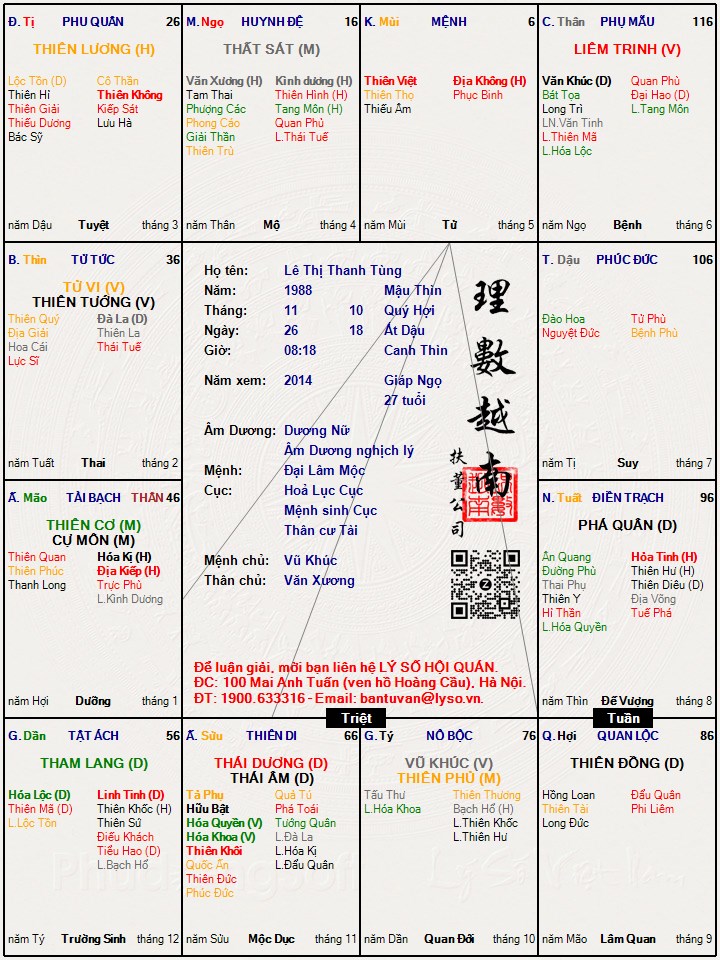 Đ. Tị PHU QUÂN 26
THIÊN LƯƠNG (H)
Lộc Tồn (D) Cô Thần
Thiên Hỉ Thiên Không
Thiên Giải Kiếp Sát
Thiếu Dương Lưu Hà
Bác Sỹ
năm Dậu Tuyệt tháng 3
M. Ngọ HUYNH ĐỆ 16
THẤT SÁT (M)
Văn Xương (H) Kình dương (H)
Tam Thai Thiên Hình (H)
Phượng Các Tang Môn (H)
Phong Cáo Quan Phủ
Giải Thần L.Thái Tuế
Thiên Trù
năm Thân Mộ tháng 4
K. Mùi MỆNH 6
Thiên Việt Địa Không (H)
Thiên Thọ Phục Binh
Thiếu Âm
năm Mùi Tử tháng 5
C. Thân PHỤ MẪU 116
LIÊM TRINH (V)
Văn Khúc (D) Quan Phù
Bát Tọa Đại Hao (D)
Long Trì L.Tang Môn
LN.Văn Tinh
L.Thiên Mã
L.Hóa Lộc
năm Ngọ Bệnh tháng 6
B. Thìn TỬ TỨC 36
TỬ VI (V)
THIÊN TƯỚNG (V)
Thiên Quý Đà La (D)
Địa Giải Thiên La
Hoa Cái Thái Tuế
Lực Sĩ
năm Tuất Thai tháng 2
Họ tên: Lê Thị Thanh Tùng
Năm: 1988 Mậu Thìn
Tháng: 11 10 Quý Hợi
Ngày: 26 18 Ất Dậu
Giờ: 08:18 Canh Thìn
Năm xem: 2014 Giáp Ngọ
27 tuổi
Âm Dương: Dương Nữ
Âm Dương nghịch lý
Mệnh: Đại Lâm Mộc
Cục: Hoả Lục Cục
Mệnh sinh Cục
Thân cư Tài
Mệnh chủ: Vũ Khúc
Thân chủ: Văn Xương
理數越南
扶董公司
Để luận giải, mời bạn liên hệ LÝ SỐ HỘI QUÁN.
ĐC: 100 Mai Anh Tuấn (ven hồ Hoàng Cầu), Hà Nội.
ĐT: 1900.633316 - Email: bantuvan@lyso.vn.
T. Dậu PHÚC ĐỨC 106
Đào Hoa Tử Phù
Nguyệt Đức Bệnh Phù
năm Tị Suy tháng 7
Ấ. Mão TÀI BẠCH THÂN 46
THIÊN CƠ (M)
CỰ MÔN (M)
Thiên Quan Hóa Kị (H)
Thiên Phúc Địa Kiếp (H)
Thanh Long Trực Phù
L.Kình Dương
năm Hợi Dưỡng tháng 1
N. Tuất ĐIỀN TRẠCH 96
PHÁ QUÂN (D)
Ân Quang Hỏa Tinh (H)
Đường Phù Thiên Hư (H)
Thai Phụ Thiên Diêu (D)
Thiên Y Địa Võng
Hỉ Thần Tuế Phá
L.Hóa Quyền
năm Thìn Đế Vượng tháng 8
Triệt
Tuần
G. Dần TẬT ÁCH 56
THAM LANG (D)
Hóa Lộc (D) Linh Tinh (D)
Thiên Mã (D) Thiên Khốc (H)
L.Lộc Tồn Thiên Sứ
Điếu Khách
Tiểu Hao (D)
L.Bạch Hổ
năm Tý Trường Sinh tháng 12
Ấ. Sửu THIÊN DI 66
THÁI DƯƠNG (D)
THÁI ÂM (D)
Tả Phụ Quả Tú
Hữu Bật Phá Toái
Hóa Quyền (V) Tướng Quân
Hóa Khoa (V) L.Đà La
Thiên Khôi L.Hóa Kị
Quốc Ấn L.Đẩu Quân
Thiên Đức
Phúc Đức
năm Sửu Mộc Dục tháng 11
G. Tý NÔ BỘC 76
VŨ KHÚC (V)
THIÊN PHỦ (M)
Tấu Thư Thiên Thương
L.Hóa Khoa Bạch Hổ (H)
L.Thiên Khốc
L.Thiên Hư
năm Dần Quan Đới tháng 10
Q. Hợi QUAN LỘC 86
THIÊN ĐỒNG (D)
Hồng Loan Đẩu Quân
Thiên Tài Phi Liêm
Long Đức
năm Mão Lâm Quan tháng 9